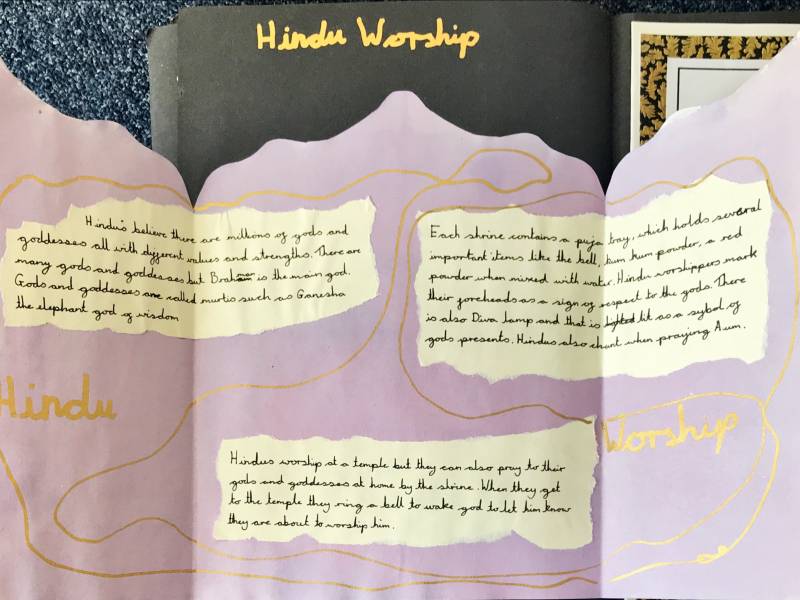 Hindu Worship
Hindu's believe there are millions of gods and
goddesses all with different values and strengths. There are
many gods and goddesses but Brahman is the main god.
Gods and goddesses are called murtis such as Ganesha
the elephant god of wisdom
Each shrine contains a puja tray, which holds several
important items like the bell, kum kum powder, a red
powder when mixed with water. Hindu worshippers mark
their foreheads as a sign of respect to the gods. There
is also Diva lamp and that is lighted lit as a sybol of
gods presents. Hindus also chant when praijing Aum.
Hindu
Worship
Hindus worship at a temple but they can also pray to their
gods and goddesses at home by the shrine. When they get
to the temple they ring a bell to wake god to let him know
they are about to worship him.